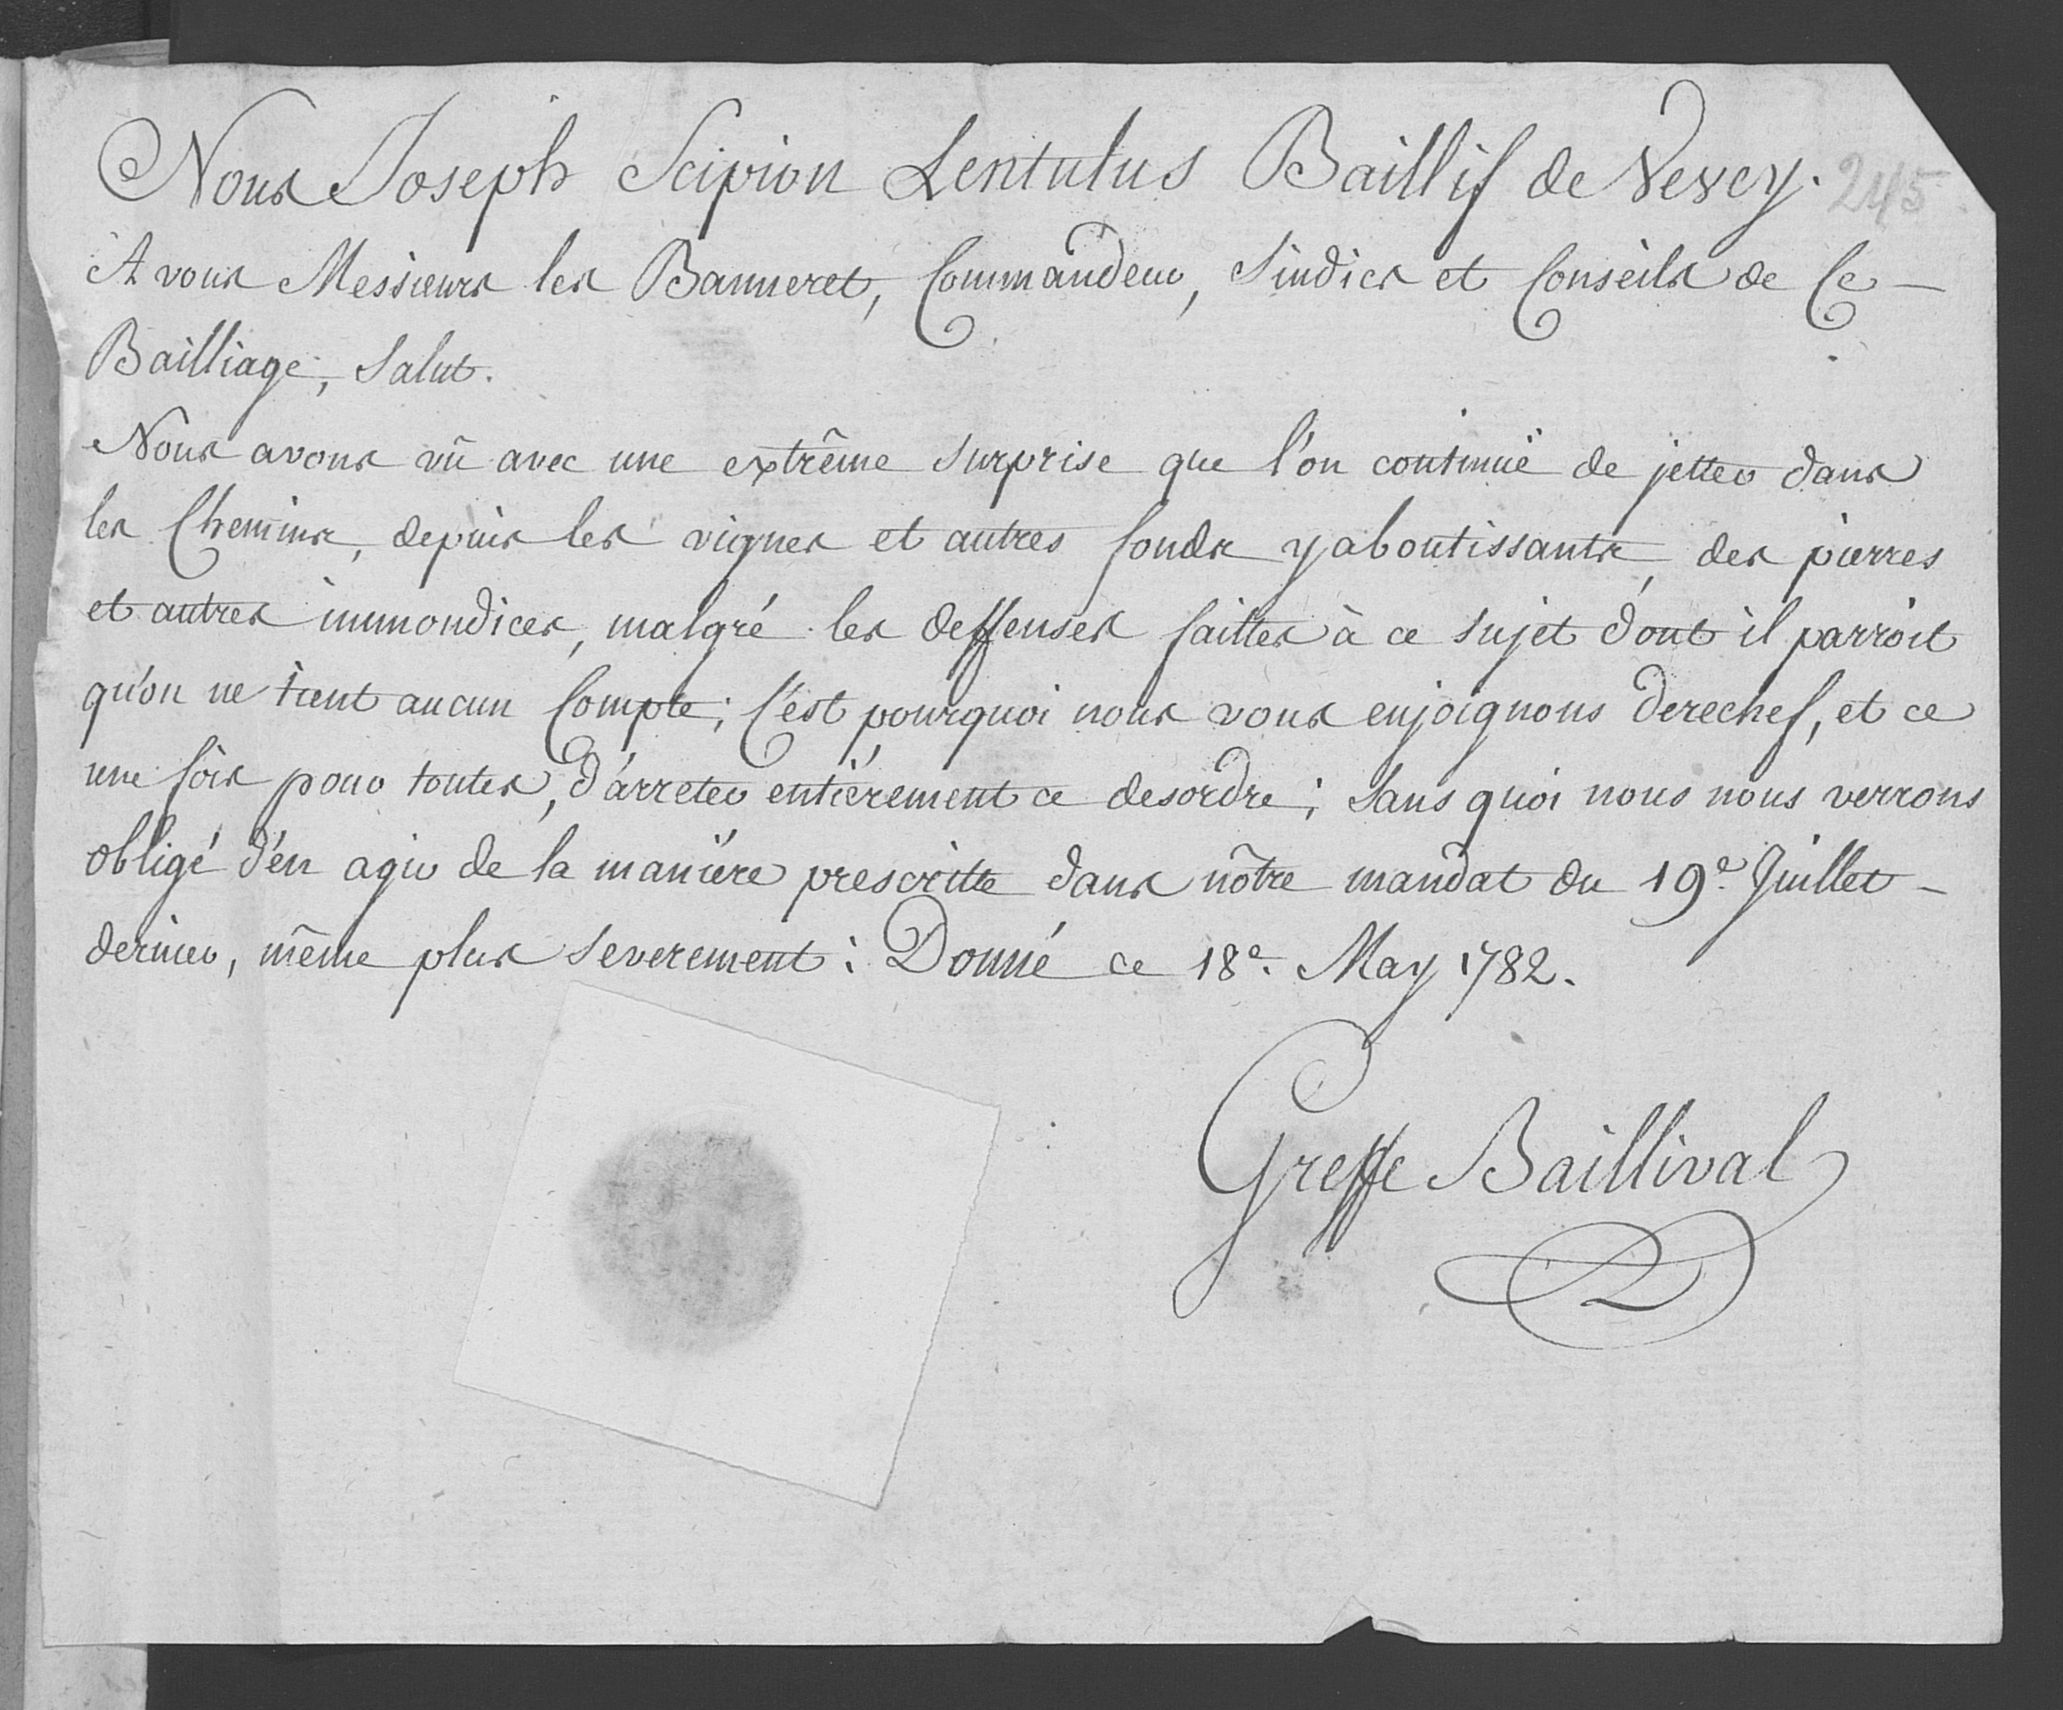 Nous Joseph Scipion Lentulus Baillif de Vevey. 245
A vous Messieurs les Banneret, Commandeur, Sindics et Conseils de Ce –
Bailliage, Salut.
Nous avons vû avec une extrême surprise que l'on continuë de jetter dans
les Chemins, depuis les vignes et autres fonds y aboutissants, des pierres
et autres immondices, malgré les deffenses faittes à ce sujet dont il parroit
qu'on ne tient aucun Compte; C'est pourquoi nous vous enjoignons derechef, et ce
une fois pour toutes, d'arreter entiérement ce desordre; Sans quoi nous nous verrons
obligé d'en agir de la maniére prescritte dans nôtre mandat du 19e. Juillet –
dernier, même plus severement: Donné ce 18e. May 1782.
Greffe Baillival